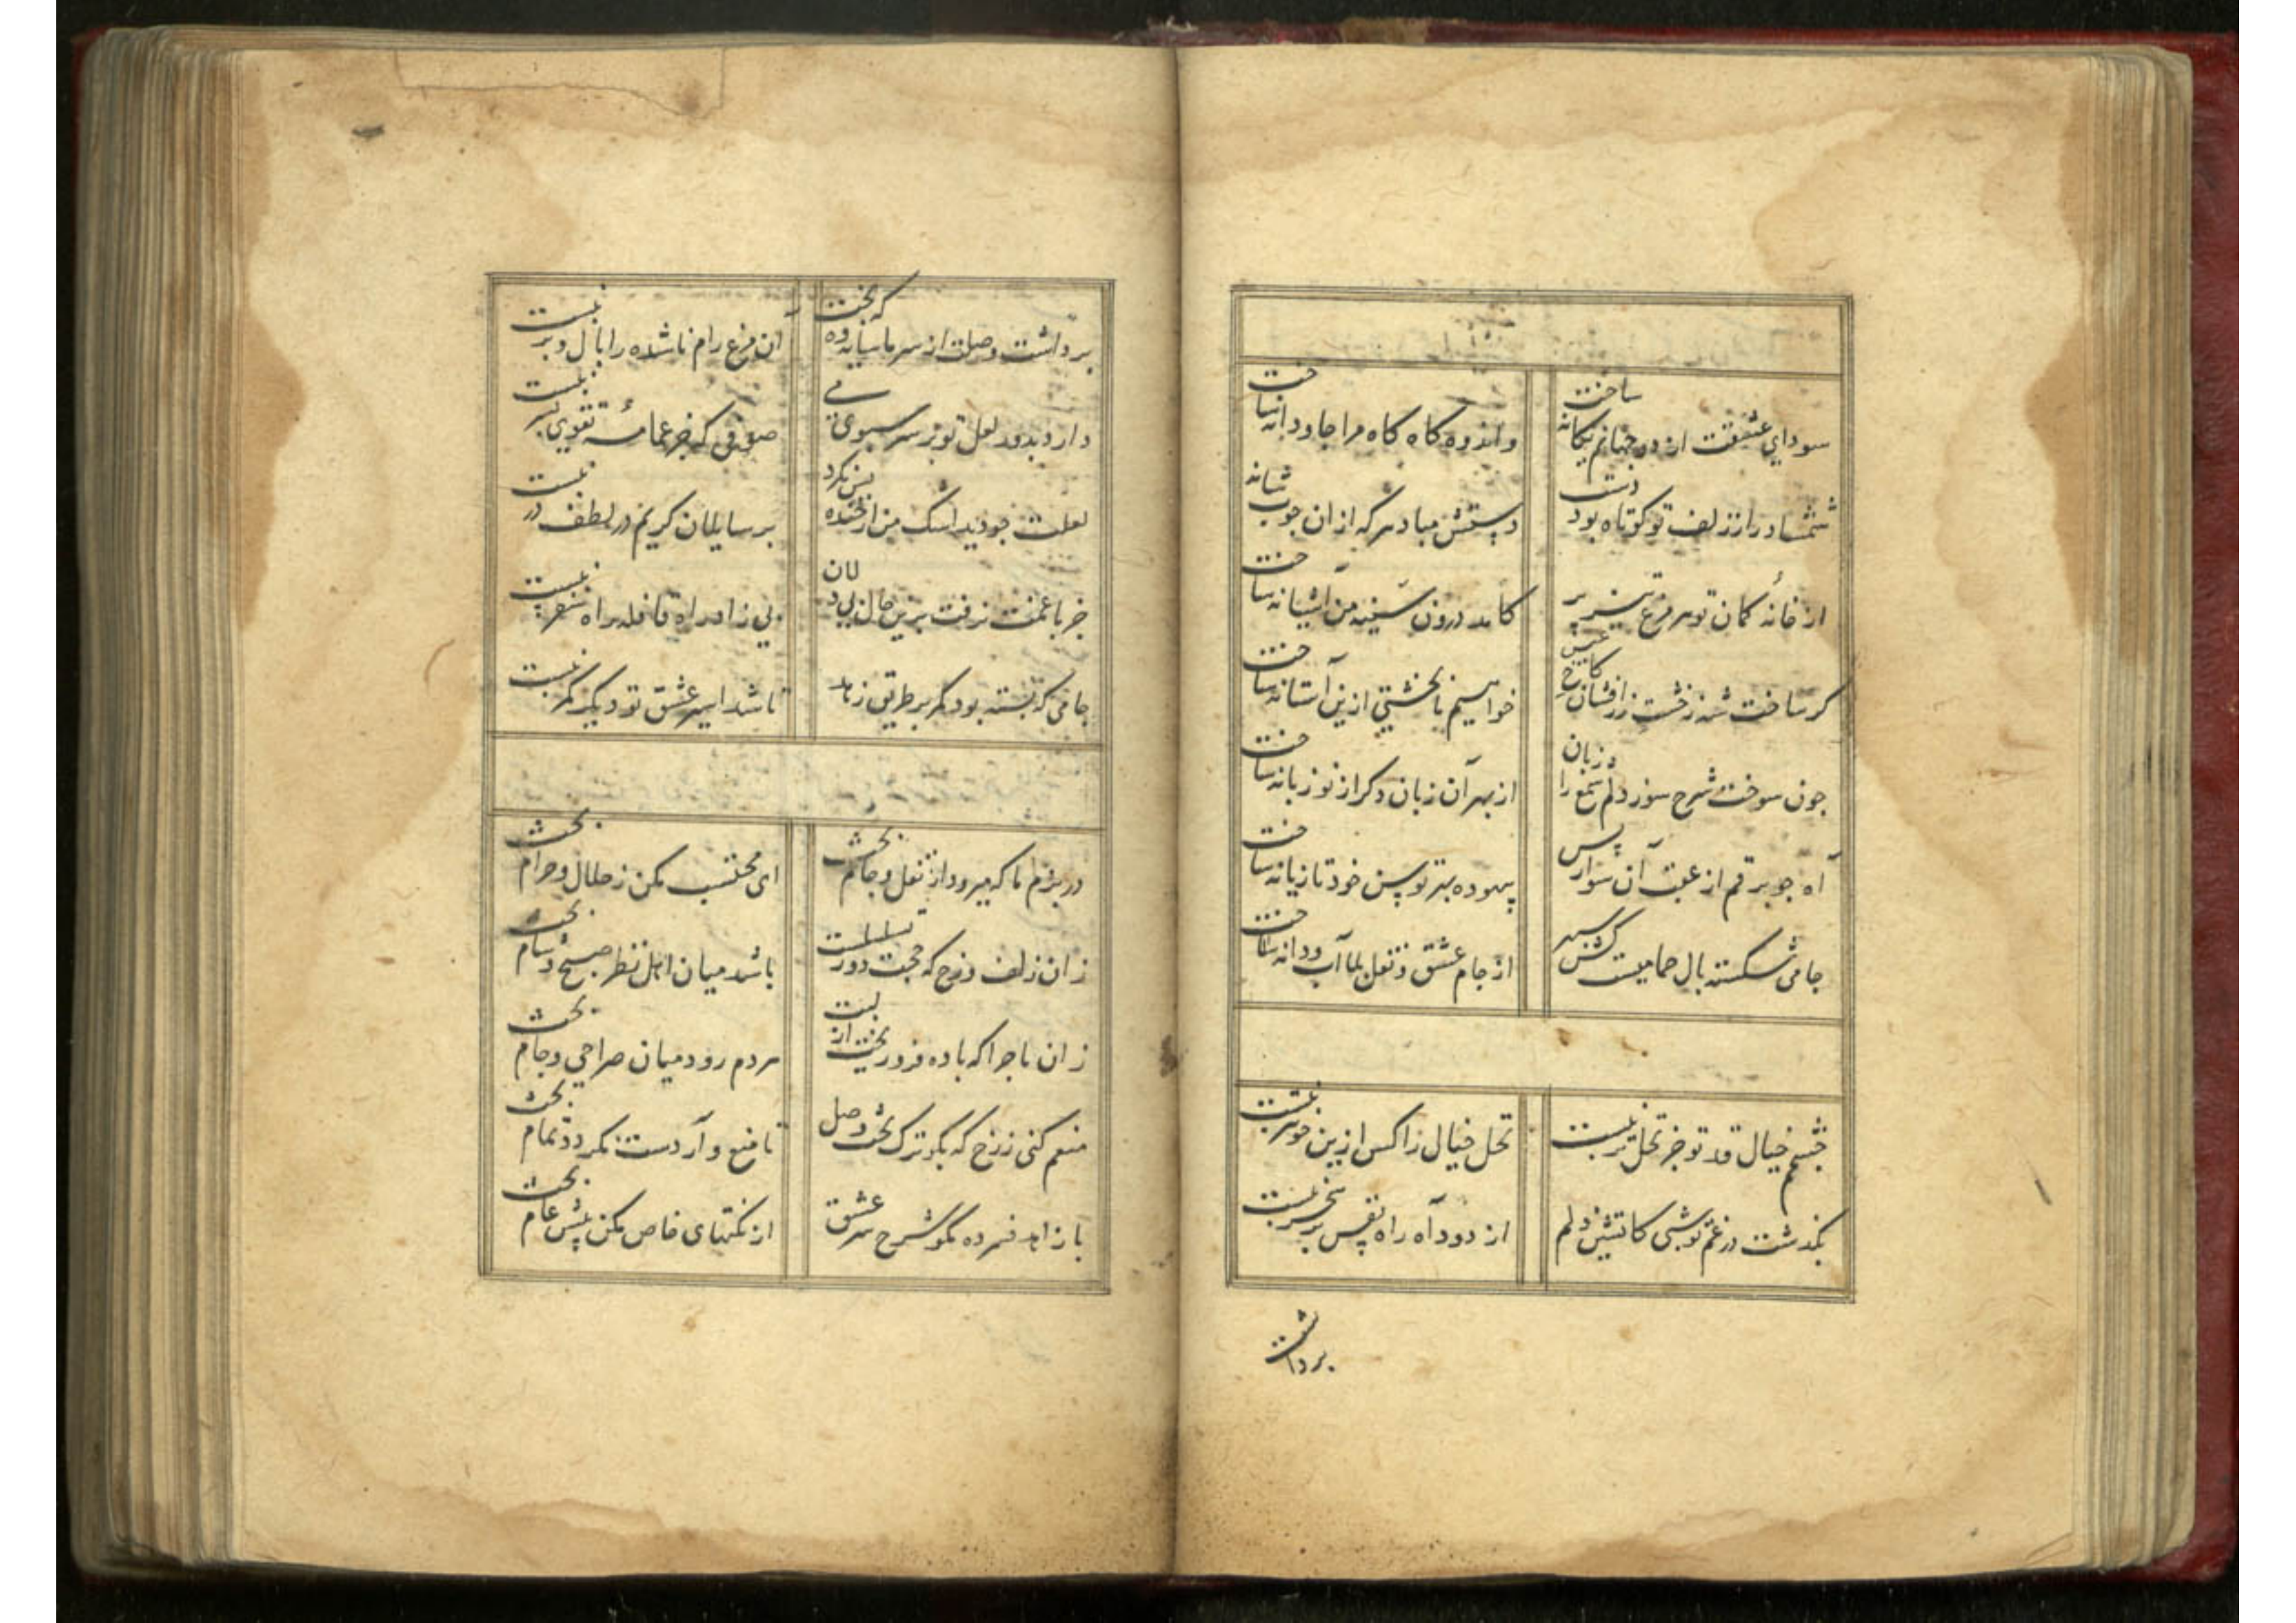 سودای عشقت از دو جهانم یکانه ساخت
و اندوه کاه کاه مرا جاودانه ساخت
شمشاد را ز زلف تو کوتاه بود دست
دستش مباد هر که از ان چوب شانه ساخت
از خانه کمان تو هر مرغ تیز پر
کامد درون سینه من آشیانه ساخت
کر ساخت شه ز خشت زرافشان کاخ عیش
خواهیم ما بخشتی ازین آستانه ساخت
چون سوخت شرح سوز دلم شمع را زبان
از بهر آن زبان دکر از نو زبانه ساخت
آه چو برقم از عقب آن سوار بس
بیهوده بهر توسن خود تازیانه ساخت
جامی شکسته بال حمامیست کش سپهر
از جام عشق و نقل بلا آب و دانه ساخت
چشمم خیال قد تو جز نخل تر نبست
نخل خیال را کس ازین خوبتر نبست
بکذشت در غم تو شبی کاتشین دلم
از دود آه راه نفس بر سحر نبست
برداشت
برداشت وصلت از سر ما سایه وه که بخت
ان مرغ رام ناشده را بال و پر نبست
دارد بدور لعل تو بر سر سبوی می
صوفی که جز عمامه تقوی بسر نبست
لعلت چو دید اشک من از خنده بس نکرد
بر سایلان کریم در لطف در نبست
جز با غمت نرفت برین حال دلان
بی زاد راه قافله راه سفر نبست
جامی که بسته بود کمر بر طریق زهد
تا شد اسیر عشق تو دیکر کمر نبست
در بزم ما که میرود از نقل و جام بحث
ای محتسب مکن ز حلال و حرام بحث
زان زلف و رخ که حجت دور تسلسلست
باشد میان اهل نظر صبح و شام بحث
زان ماجرا که باده فرو ریخت از لبت
مردم رود میان صراحی و جام بحث
منعم کنی ز رخ که بکو ترک بحث وصل
تا منع وارد ست نکردد تمام بحث
با زاهد فسرده مکو شرح سر عشق
از نکتهای خاص مکن پیش عام بحث